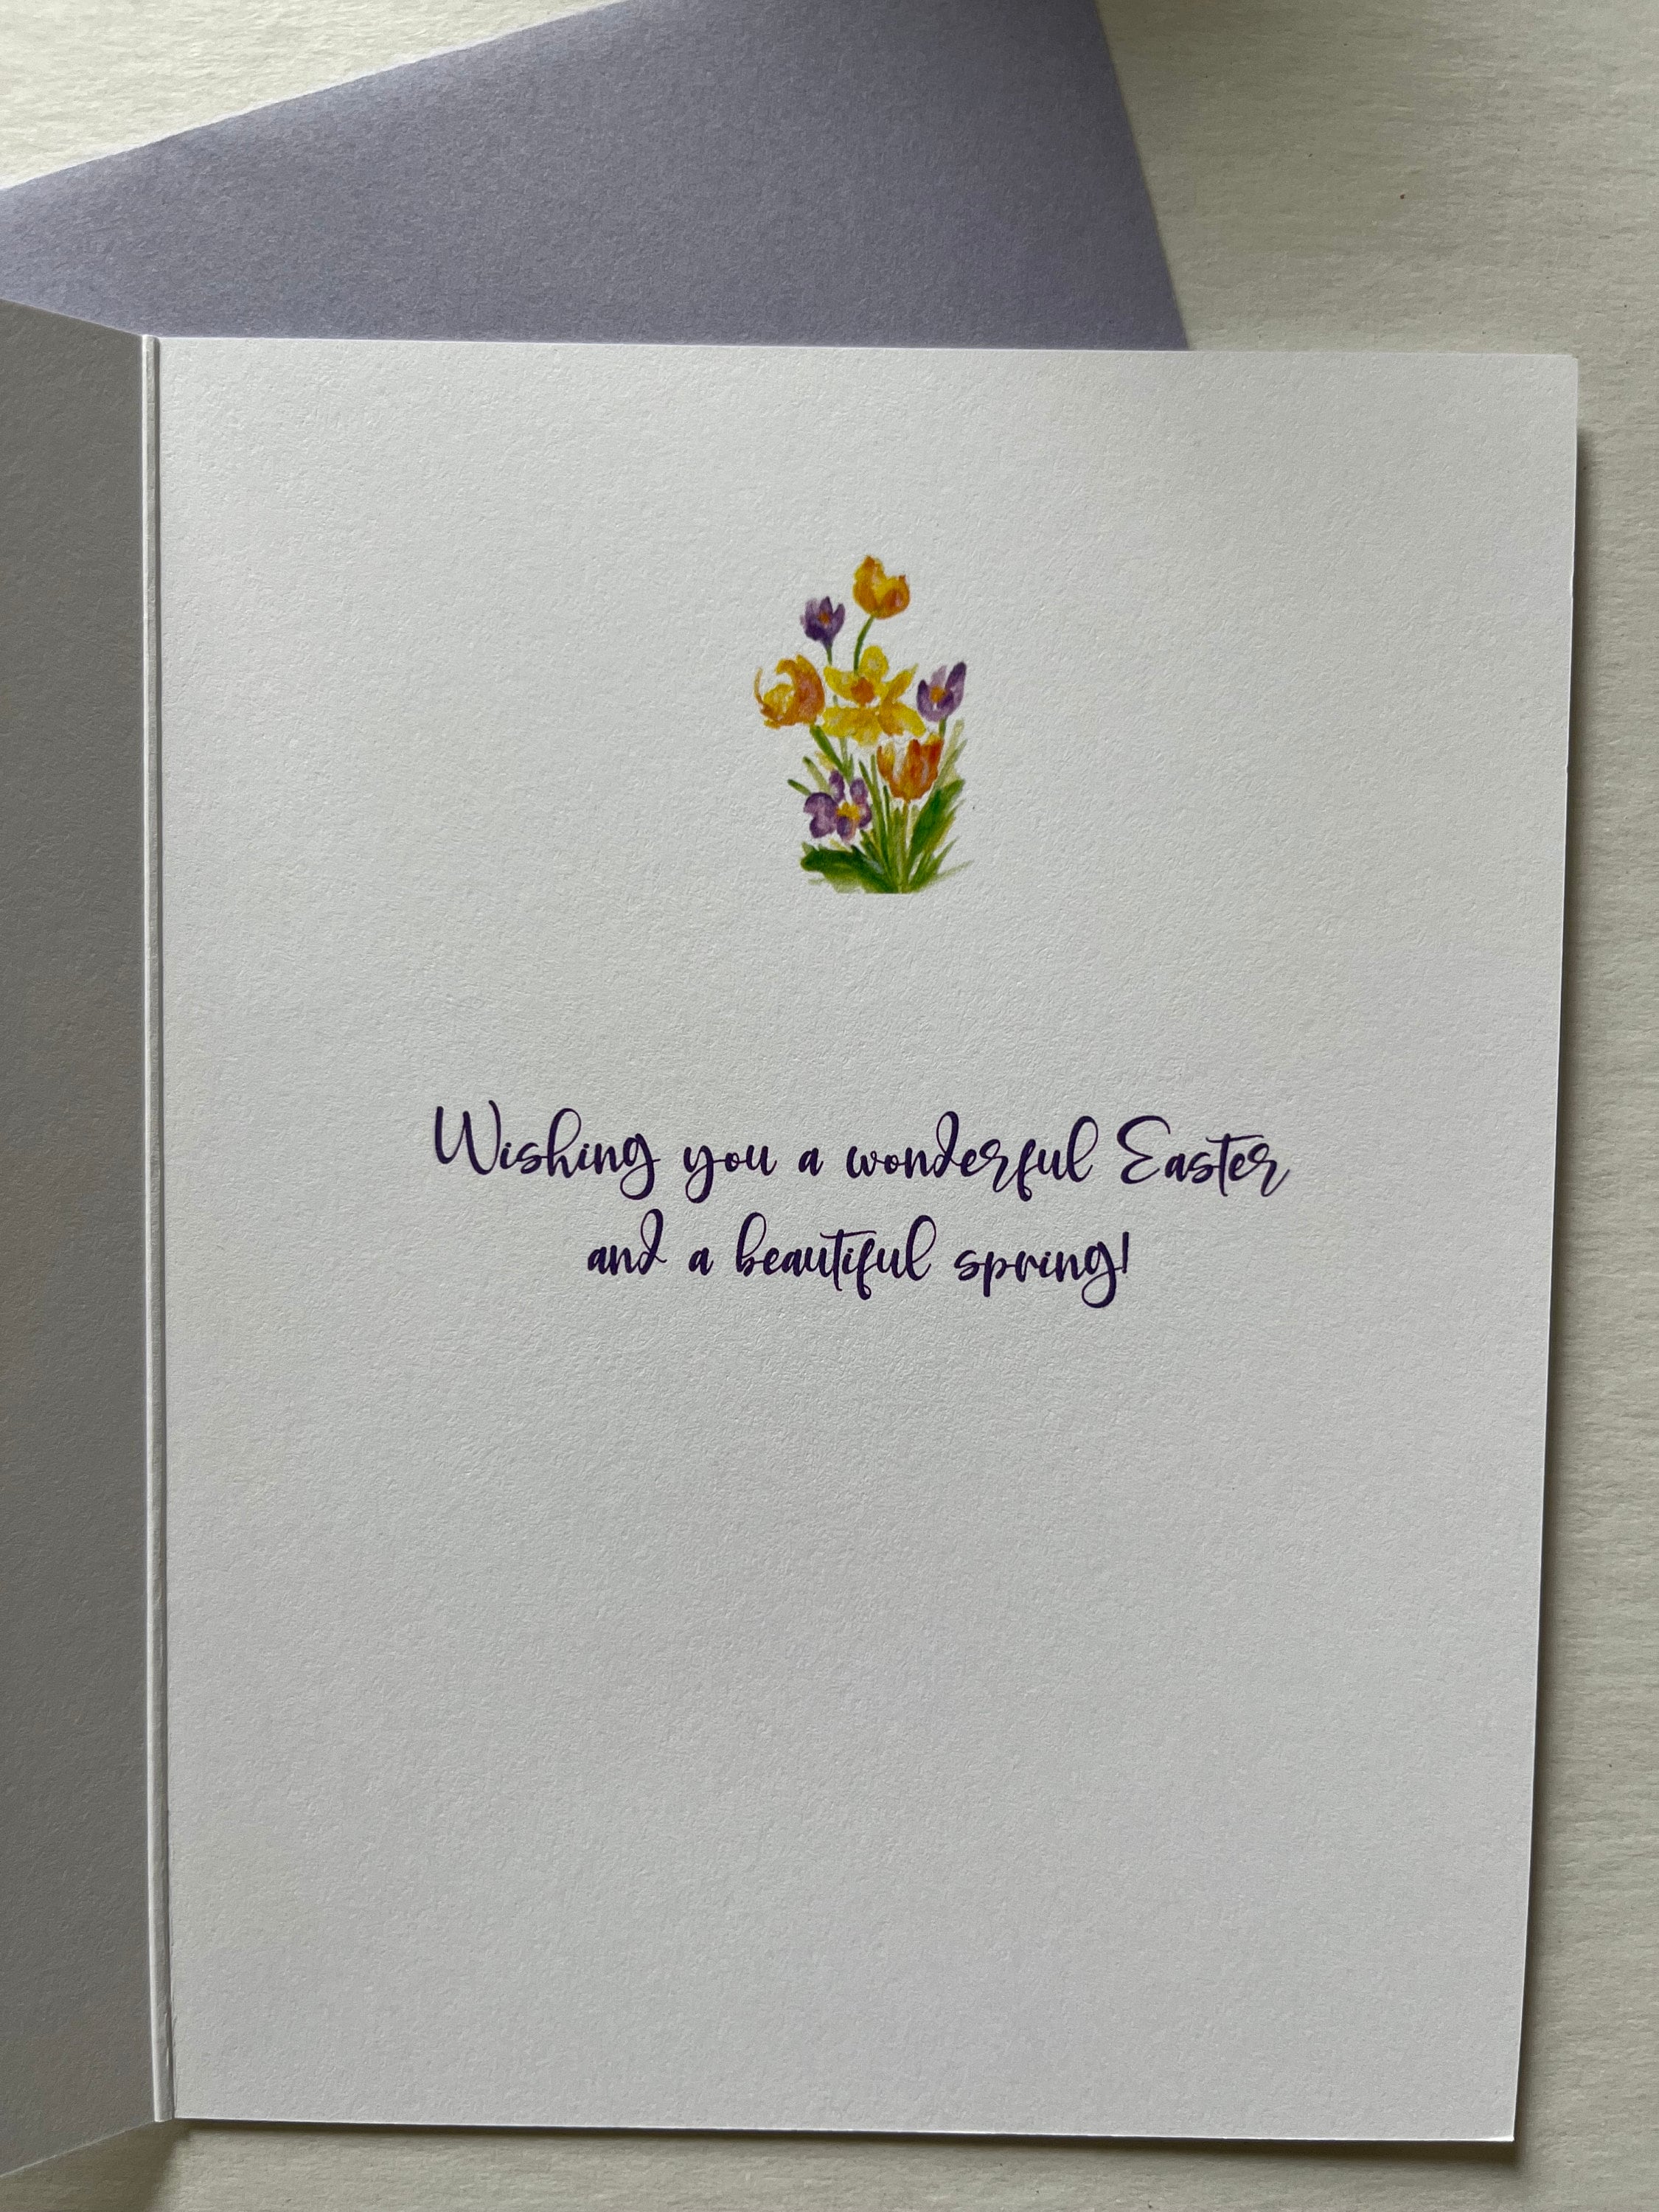 Wishing you a wonderful Easter
and a beautiful spring!